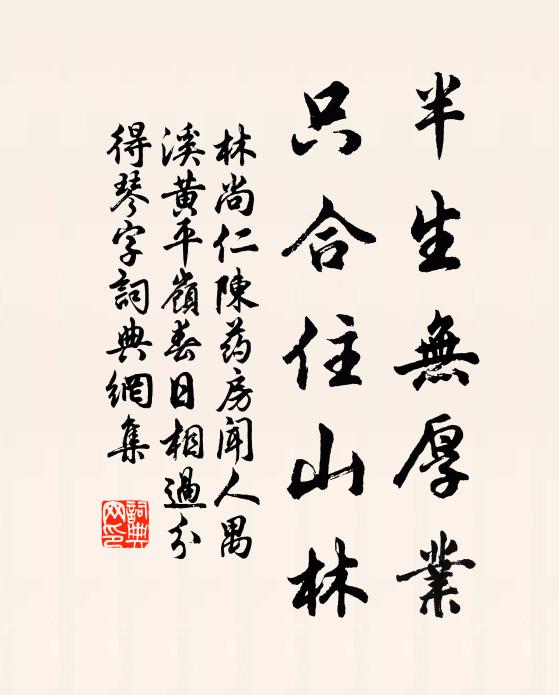 半生無厚業
只合住山林
林尚仁陳药房闻人禺
溪黄平嶺春日相過分
得琴字詞典網集
詞典网印